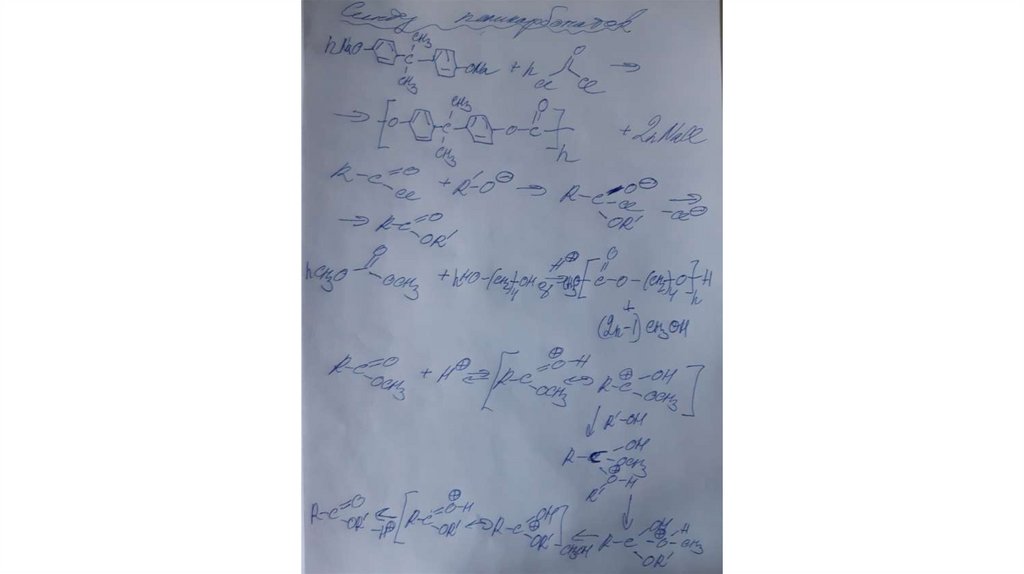 Синтез поликарбонатов
nNaO- CH3 C CH3 -ONa + n O Cl Cl →
→ [-O- CH3 C CH3 -O-C(=O)-]n + 2nNaCl
R-C(=O)Cl + R'-O⊖ → R-C(-O⊖)(Cl)(OR') → -Cl⊖
→ R-C(=O)OR'
nCH3O O OCH3 + nHO-(CH2)4-OH H⊕ CH3O[-C(=O)-O-(CH2)4-O-]n H
+
(2n-1) CH3OH
R-C(=O)OCH3 + H⊕ ⇌ [R-C(=O⊕-H)OCH3 ↔ R-C⊕(-OH)OCH3]
↓ R'-OH
R-C(-OH)(-OCH3)(O⊕-H)R'
↓
R-C(=O)OR' ← -H⊕ [R-C(=O⊕-H)OR' ↔ R-C⊕(OH)OR'] ← CH3OH R-C(OH)(-O⊕(H)-CH3)OR'